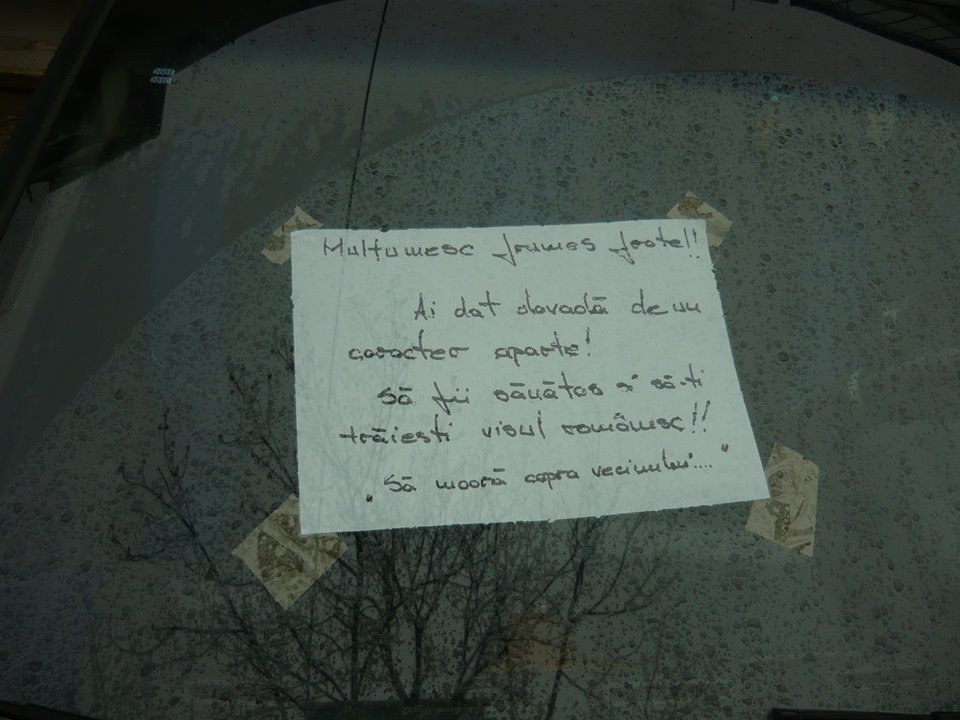 2009
2010
Multumesc frumos frate!!
Ai dat dovadă de un
caracter aparte!
Să fii sănătos si să-ti
trăiesti visul românesc!!
„Să moară capra vecinului...."